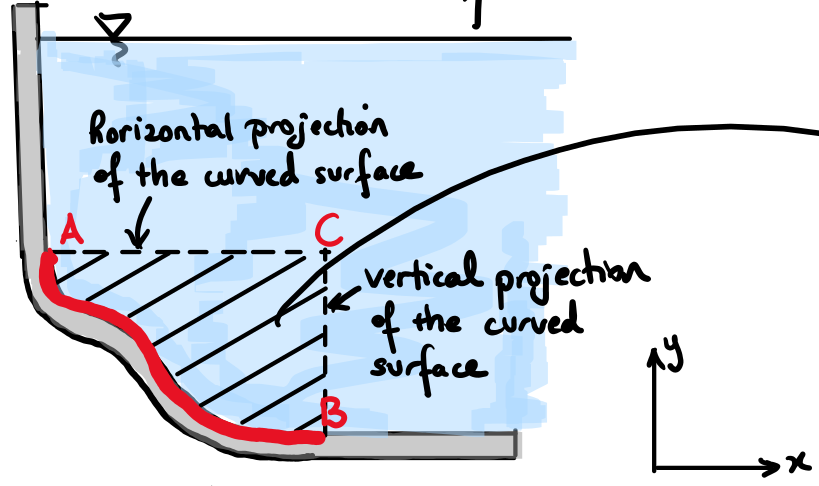 horizontal projection
of the curved surface
A
C
vertical projection
of the curved
surface
B
y
x